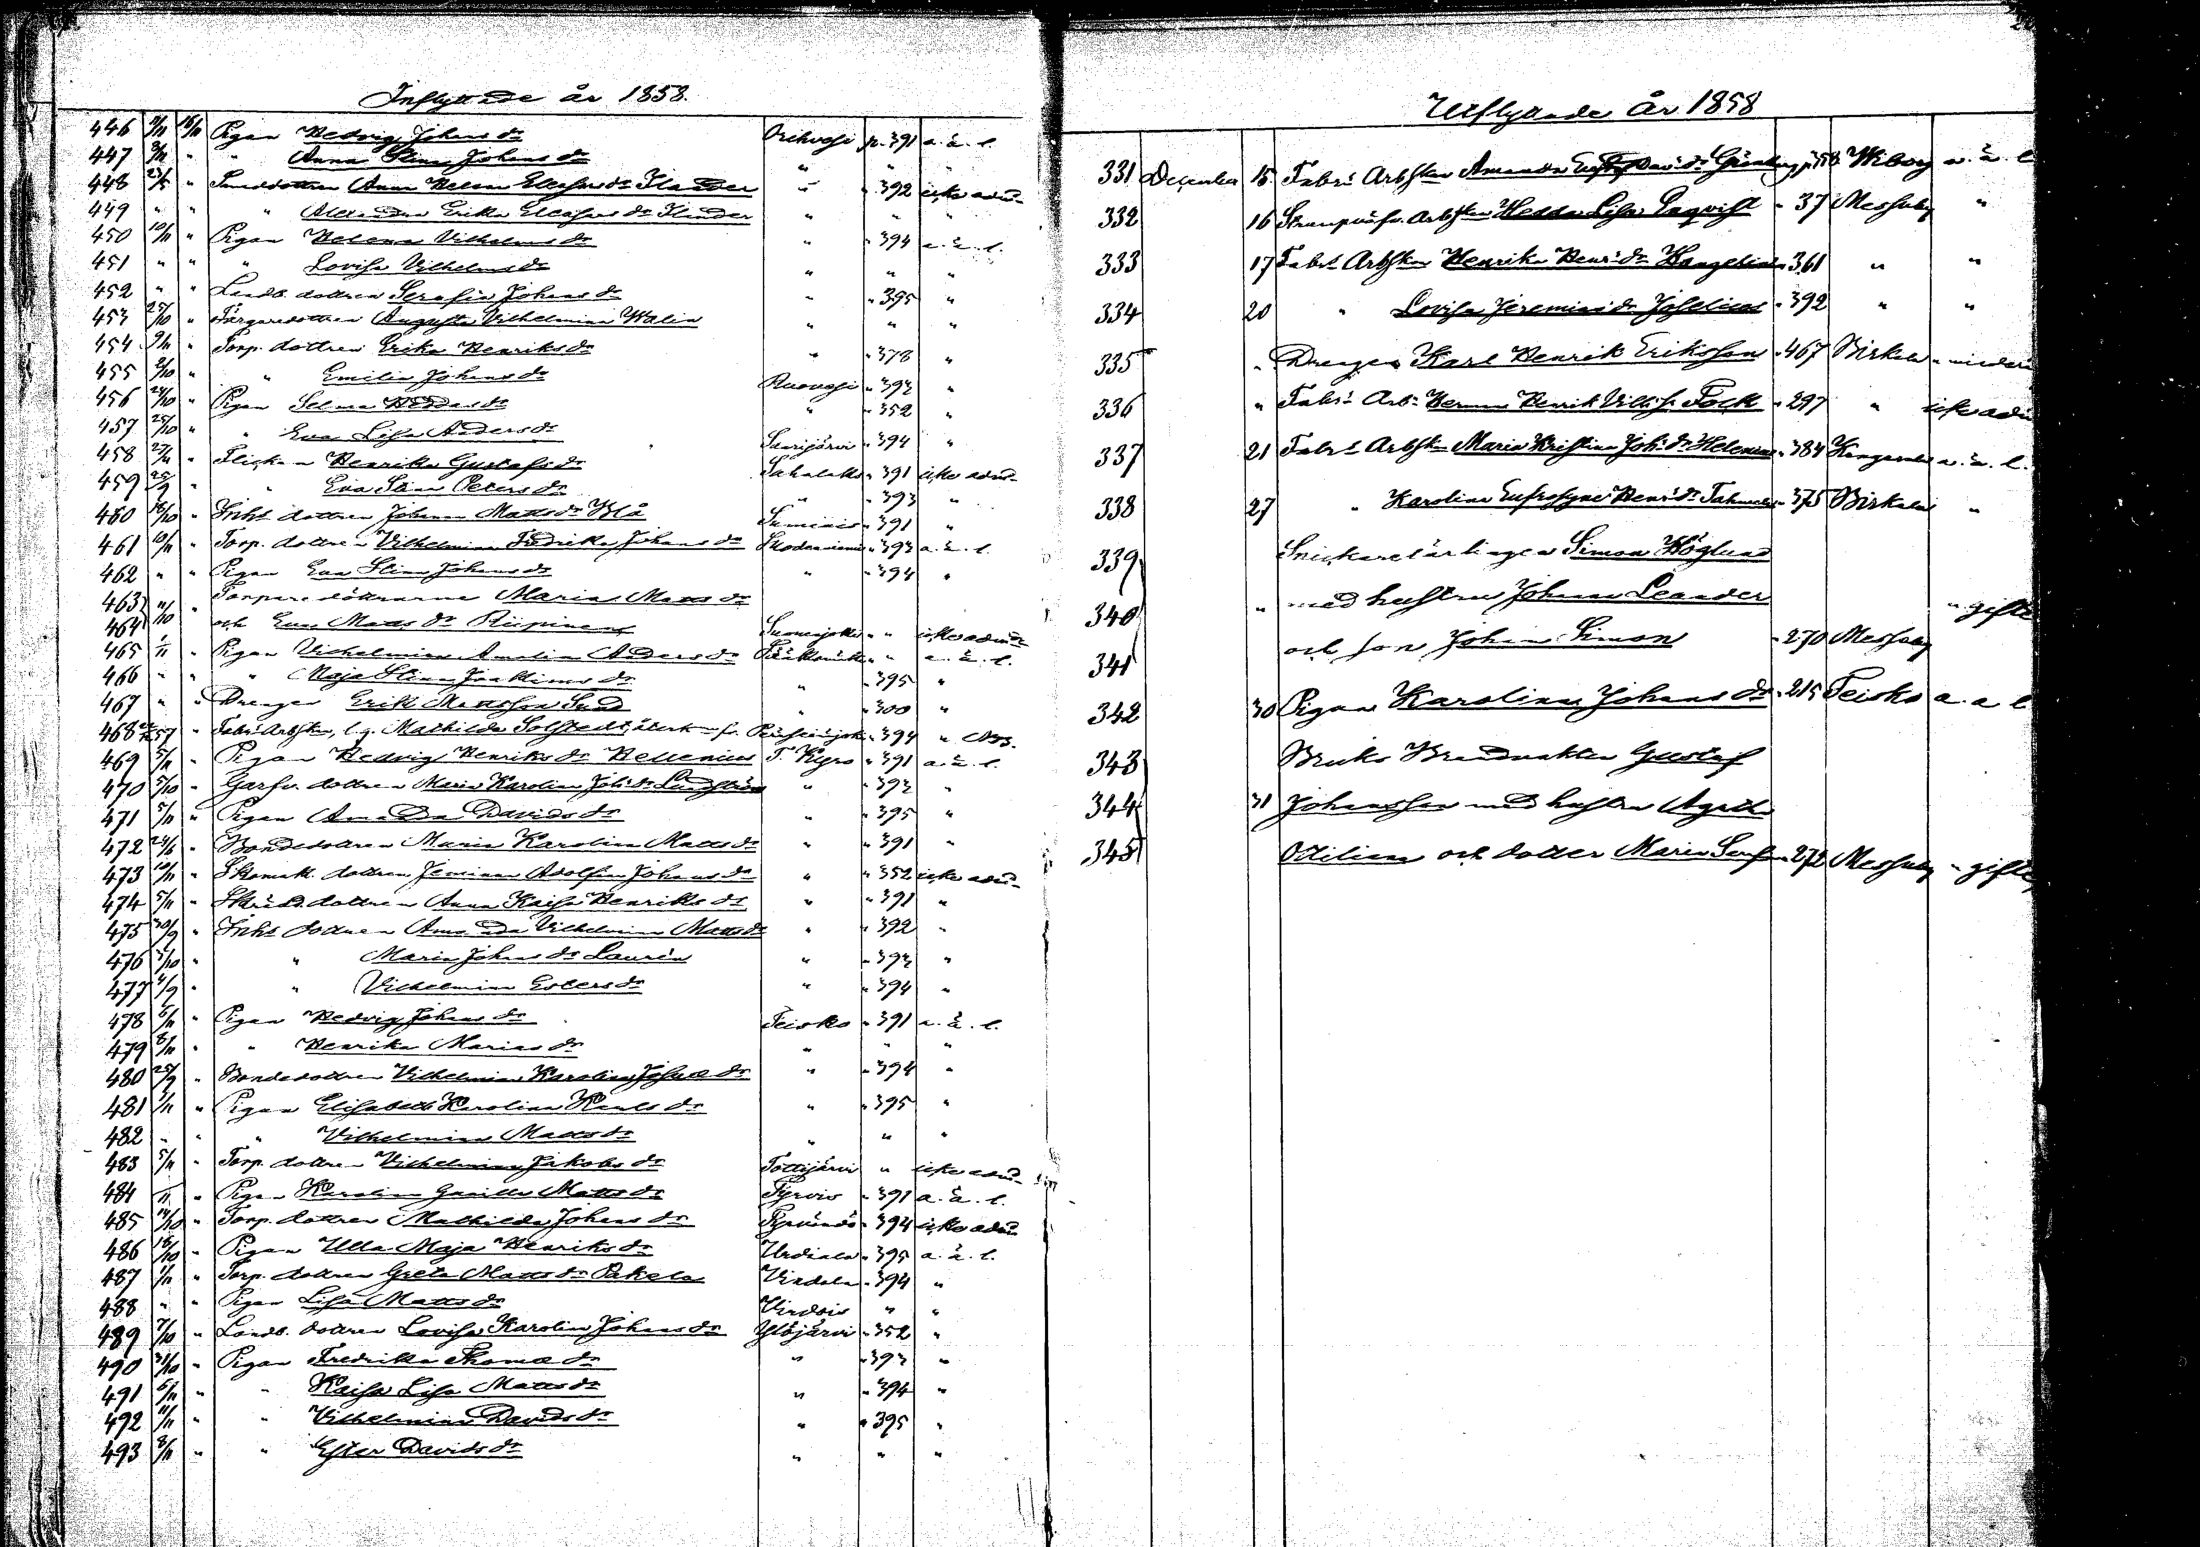 Inflyttade år 1858.
446 9/11 16/11 Pigan Hedvig Johans dr Orihvesi p. 391 a. ä. l.
447 " " Anna Stina Johans dr " " "
448 " Smeddottren Anna Helena Eleasars dr Ilander " " 392 icke adm.
449 " " " Alexandra Erika Eleasars dr Ilander " " "
450 10/11 " Pigan Helena Vilhelms dr " " 394 a. ä. l.
451 " " " Lovisa Vilhelms dr " " "
452 " " Landb. dottren Serafia Johans dr " " 395 "
453 25/10 " Färgaredottren Augusta Vilhelmina Walin " " "
454 9/11 " Torp. dottren Erika Henriks dr " " 378 "
455 " " Emilia Johans dr Ruovesi " 393 "
456 24/10 " Pigan Selma " " 352 "
457 25/10 " " Eva Lisa Anders dr " 394 "
458 " Flickan Henrika Gustafs dr Sahalaks " 391 icke adm.
459 25/9 " " Eva Stina Peters dr " " 393 "
460 18/10 " Inhs dottren Johanna Matts dr Blå " 391 "
461 10/11 " Torp. dottren Vilhelmina Fredrika Johans dr " 393 a. ä. l.
462 " " Pigan Eva Stina Johans dr " " 394 "
463 " Torparedöttrarna Maria Matts dr
464 11/10 och Eva Matts dr " " icke adm.
465 1/11 " Pigan Vilhelmina Amalia Anders dr " " a. ä. l.
466 " " " Maja Stina Joakims dr " " 395 "
467 " " Drengen Erik Mattsson Sund " " 300 "
468 57 " Fabr. Arbskan, l. g. Mathilda Solstedt, återk. fr. " 394 "
469 5/11 " Pigan Hedvig Henriks dr Hellenius T. Kyro " 391 a. ä. l.
470 5/10 " Garfv. dottren Maria Karolina Joh. dr Lundström " " 393 "
471 5/11 " Pigan Amanda Davids dr " " 395 "
472 24/6 " Bondedottren Maria Karolina Matts dr " " 391 "
473 10/11 " Skomak. dottren Jemina Adolfina Johans dr " " 352 icke adm.
474 5/11 " Skrädd. dottren Anna Kaisa Henriks dr " " 391 "
475 30/9 " Inhs dottren Amanda Vilhelmina Matts dr " " 392 "
476 3/10 " " Maria Johans dr Laurén " " 393 "
477 4/9 " " Vilhelmina " " 394 "
478 6/11 " Pigan Hedvig Johans dr Teisko " 391 a. ä. l.
479 8/11 " " Henrika Marias dr " " "
480 25/9 " Bondedottren Vilhelmina Karolina Josua dr " " 394 "
481 7/11 " Pigan Elisabeth Karolina Karls dr " " 395 "
482 " " " Vilhelmina Matts dr " " "
483 5/11 " Torp. dottren Vilhelmina Jakobs dr Tottijärvi " icke adm.
484 " Pigan Karolina Gunilla Matts dr Tyrvis " 391 a. ä. l.
485 14/10 " Torp. dottren Mathilda Johans dr Tyrvändö " 394 icke adm.
486 18/10 " Pigan Ulla Maja Henriks dr Urdiala " 395 a. ä. l.
487 1/11 " Torp. dottren Greta Matts dr Pakela Virdala " 394 "
488 " " Pigan Lisa Matts dr Virdois " "
489 7/10 " Landb. dottren Lovisa Karolina Johans dr Ylöjärvi " 352 "
490 31/10 " Pigan Fredrika Thomæ dr " " 393 "
491 6/11 " " Kaisa Lisa Matts dr " " 394 "
492 11/11 " " Vilhelmina Davids dr " " 395 "
493 8/11 " " Ester Davids dr " " "
Utflyttade år 1858
331 December 15. Fabr. Arbskan Amanda Davids dr p. 158 Wiborg a. ä. l.
332 16 Arbskan Hedda Lisa Enqvist " 37 Messuby "
333 17 Fabr. Arbskan Henrika Henr. dr " 361 " "
334 20 " Lovisa Jeremias dr Joselius " 392 " "
335 " Drengen Karl Henrik Eriksson " 467 Birkala "
336 " Fabr. Arb. Herman Henrik Vilh. s. Fock " 297 " icke adm
337 21 Fabr. Arbskan Maria Kristina Joh. dr Helenius " 384 Kangasala a. ä. l.
338 27 " Karolina Eufrosyne Henr. dr " 375 Birkala "
339 Snickarelärlingen Simon Höglund
340 " med hustru Johanna Leander " gifte
341 och son Johan Simon " 270 Messuby
342 30 Pigan Karolina Johans dr " 215 Teisko a. ä. l
343 Bruks Brandvakten Gustaf
344 31 Johansson med hustru Agatha
345 Otiliana och dotter Maria Serafina " 272 Messuby " gifte